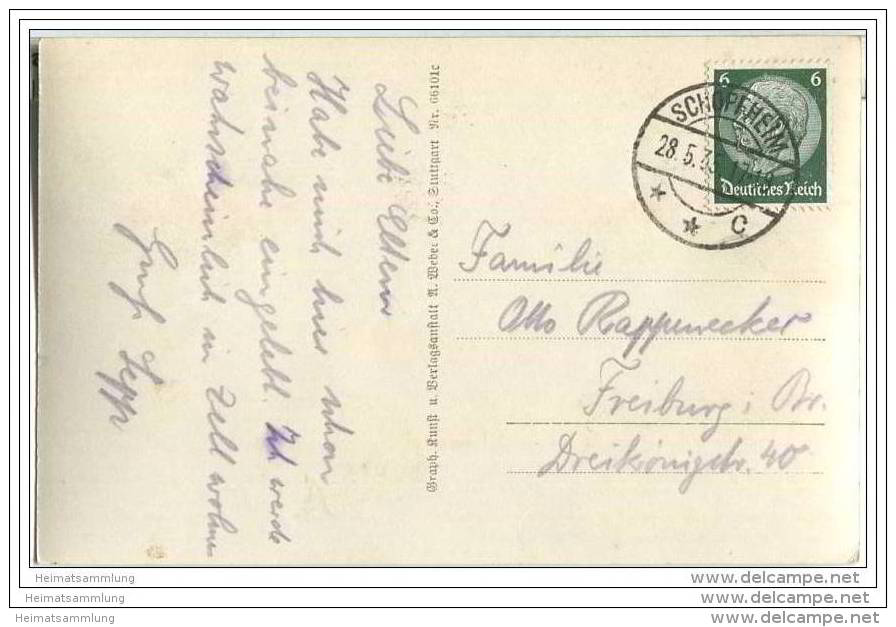 Liebe Eltern
Habe mich hier schon
beinahe eingelebt. Ich werde
wahrscheinlich in Zell wohnen
Gruß Sepp
Graph. Kunst u. Verlagsanstalt A. Weber & Co., Stuttgart Nr. 66101c
6 6
Deutsches Reich
SCHOPFHEIM
28.5.3
* * C
Familie
Otto Rappenecker
Freiburg i Br.
Dreikönigstr. 40
Heimatsammlung
Heimatsammlung
Heimatsammlung
www.delcampe.net
www.delcampe.net
www.delcampe.net